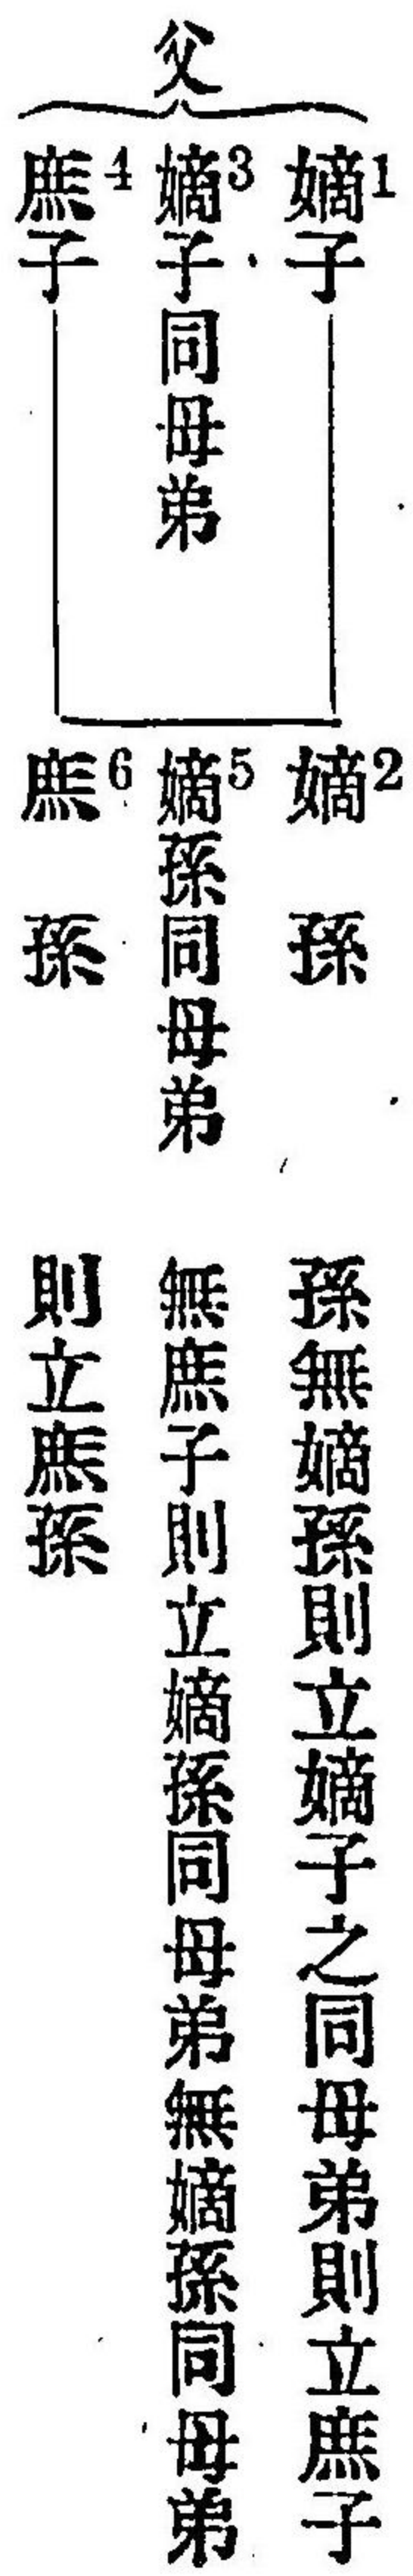 父
嫡子1
嫡子同母弟3
庶子4
嫡孫2
嫡孫同母弟5
庶孫6
孫無嫡孫則立嫡子之同母弟則立庶子
無庶子則立嫡孫同母弟無嫡孫同母弟
則立庶孫